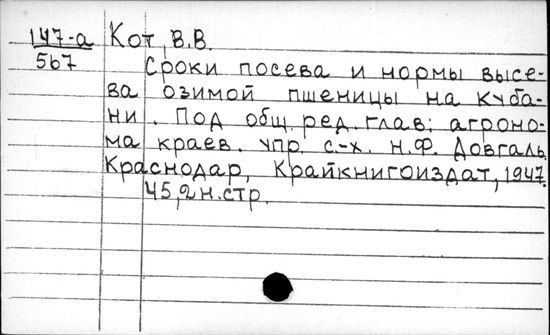 147-а Кот, В.В.
567
Сроки посева и нормы высе-
ва озимой пшеницы на Куба-
ни. Под общ. ред. глав. агроно-
ма краев. упр. с.-х. Н.Ф. Довгаль.
Краснодар, Крайкнигоиздат, 1947.
45, 2 н. стр.